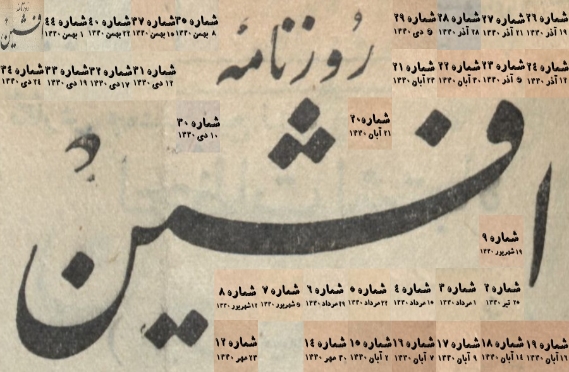 روزنامهٔ
افشین
شماره ۲۶ شماره ۲۷ شماره ۲۸ شماره ۲۹ شماره ۳۵ شماره ۳۷ شماره ۴۰ شماره ۴۴
۱۹ آذر ۱۳۳۰ ۲۱ آذر ۱۳۳۰ ۲۸ آذر ۱۳۳۰ ۵ دی ۱۳۳۰ ۸ بهمن ۱۳۳۰ ۱۵ بهمن ۱۳۳۰ ۲۲ بهمن ۱۳۳۰ ۱ بهمن ۱۳۳۰
شماره ۲۴ شماره ۲۳ شماره ۲۲ شماره ۲۱ شماره ۳۱ شماره ۳۲ شماره ۳۳ شماره ۳۴
۱۲ آذر ۱۳۳۰ ۵ آذر ۱۳۳۰ ۳۰ آبان ۱۳۳۰ ۲۳ آبان ۱۳۳۰ ۱۲ دی ۱۳۳۰ ۱۷ دی ۱۳۳۰ ۱۹ دی ۱۳۳۰ ۲۴ دی ۱۳۳۰
شماره ۲۰ شماره ۳۰
۲۱ آبان ۱۳۳۰ ۱۰ دی ۱۳۳۰
شماره ۹
۱۹ شهریور ۱۳۳۰
شماره ۲ شماره ۳ شماره ۴ شماره ۵ شماره ۶ شماره ۷ شماره ۸
۲۵ تیر ۱۳۳۰ ۱ مرداد ۱۳۳۰ ۱۵ مرداد ۱۳۳۰ ۲۲ مرداد ۱۳۳۰ ۲۹ مرداد ۱۳۳۰ ۵ شهریور ۱۳۳۰ ۱۲ شهریور ۱۳۳۰
شماره ۱۹ شماره ۱۸ شماره ۱۷ شماره ۱۶ شماره ۱۵ شماره ۱۴ شماره ۱۲
۱۶ آبان ۱۳۳۰ ۱۴ آبان ۱۳۳۰ ۹ آبان ۱۳۳۰ ۷ آبان ۱۳۳۰ ۲ آبان ۱۳۳۰ ۳۰ مهر ۱۳۳۰ ۲۳ مهر ۱۳۳۰